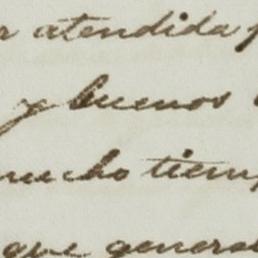 r atendida p
y buenos
mucho tiem
que genera